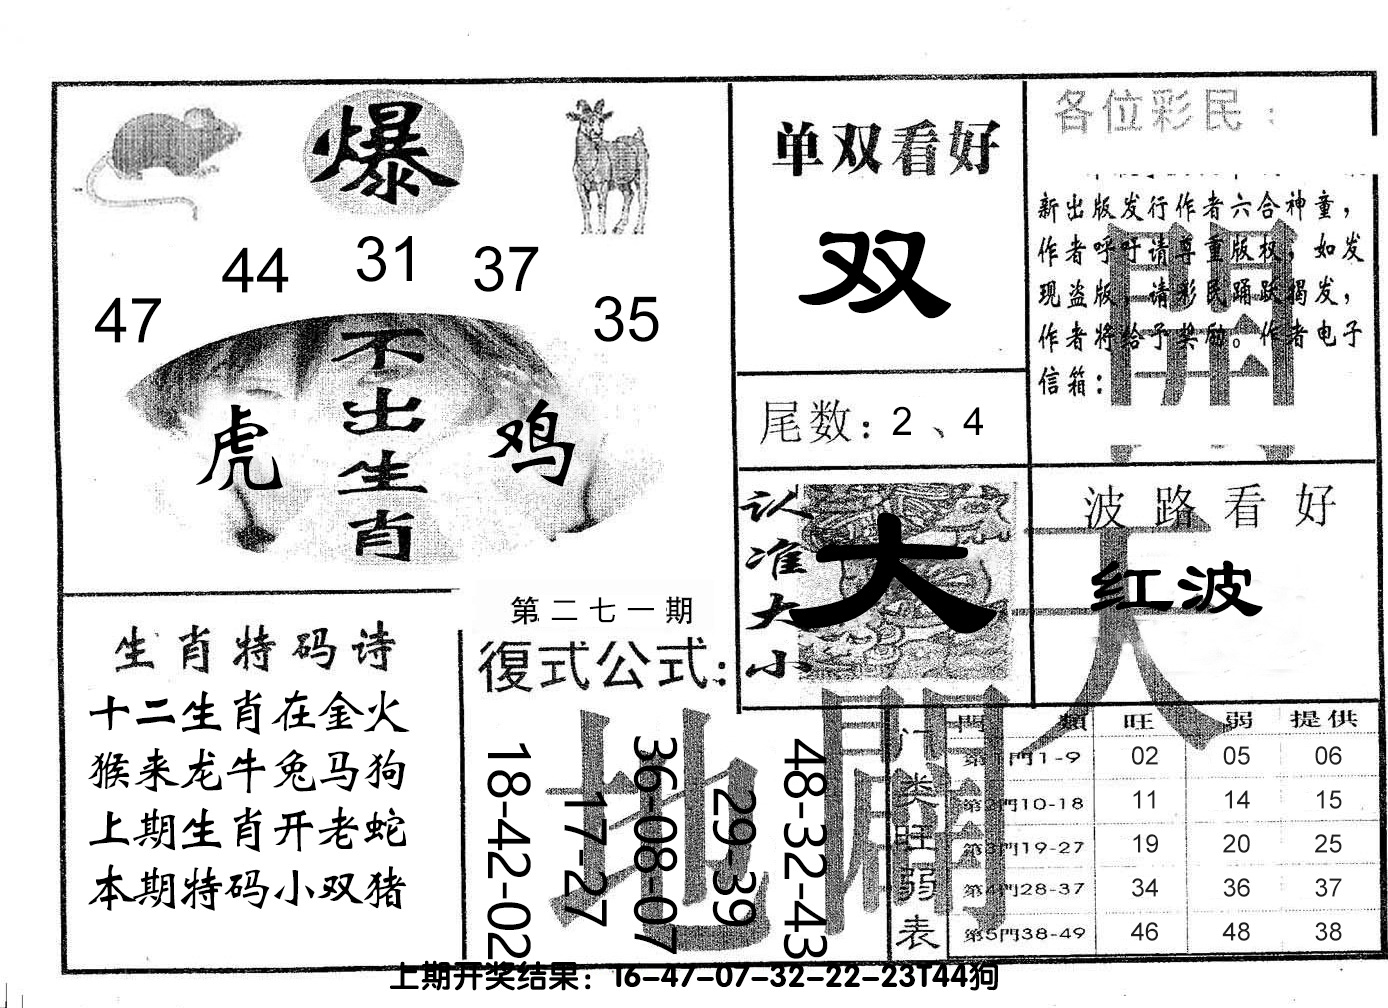 爆
47 44 31 37 35
不出生肖
虎 鸡
单双看好
双
尾数：2、4
各位彩民：
新出版发行作者六合神童，
作者呼吁请尊重版权，如发
现盗版，请彩民踊跃揭发，
作者将给予奖励。作者电子
信箱：
認准大小
大
波路看好
红波
天
地
開
生肖特码诗
十二生肖在金火
猴来龙牛兔马狗
上期生肖开老蛇
本期特码小双猪
第二七一期
復式公式：
18-42-02
17-27
36-08-07
29-39
48-32-43
门类旺弱表
門類 旺 弱 提供
第1門1-9 02 05 06
第2門10-18 11 14 15
第3門19-27 19 20 25
第4門28-37 34 36 37
第5門38-49 46 48 38
上期开奖结果：16-47-07-32-22-23T44狗